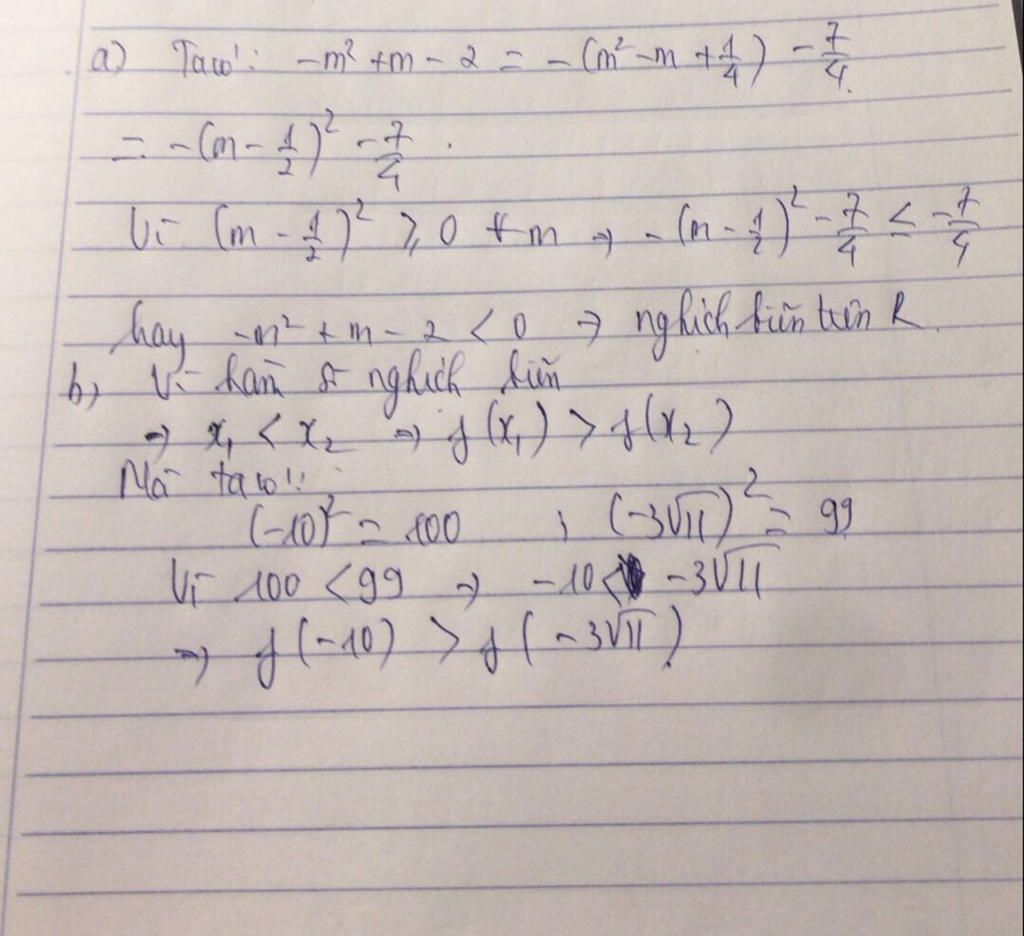 a) Ta có: -m² + m - 2 = -(m² - m + 1/4) - 7/4.
= -(m - 1/2)² - 7/4.
Vì (m - 1/2)² ≥ 0 ∀m ⇒ -(m - 1/2)² - 7/4 ≤ -7/4
hay -m² + m - 2 < 0 ⇒ nghịch biến trên R.
b) Vì hàm số nghịch biến
⇒ x₁ < x₂ ⇒ f(x₁) > f(x₂)
Mà ta có:
(-10)² = 100 ; (-3√11)² = 99
Vì 100 < 99 ⇒ -10 < -3√11
⇒ f(-10) > f(-3√11).